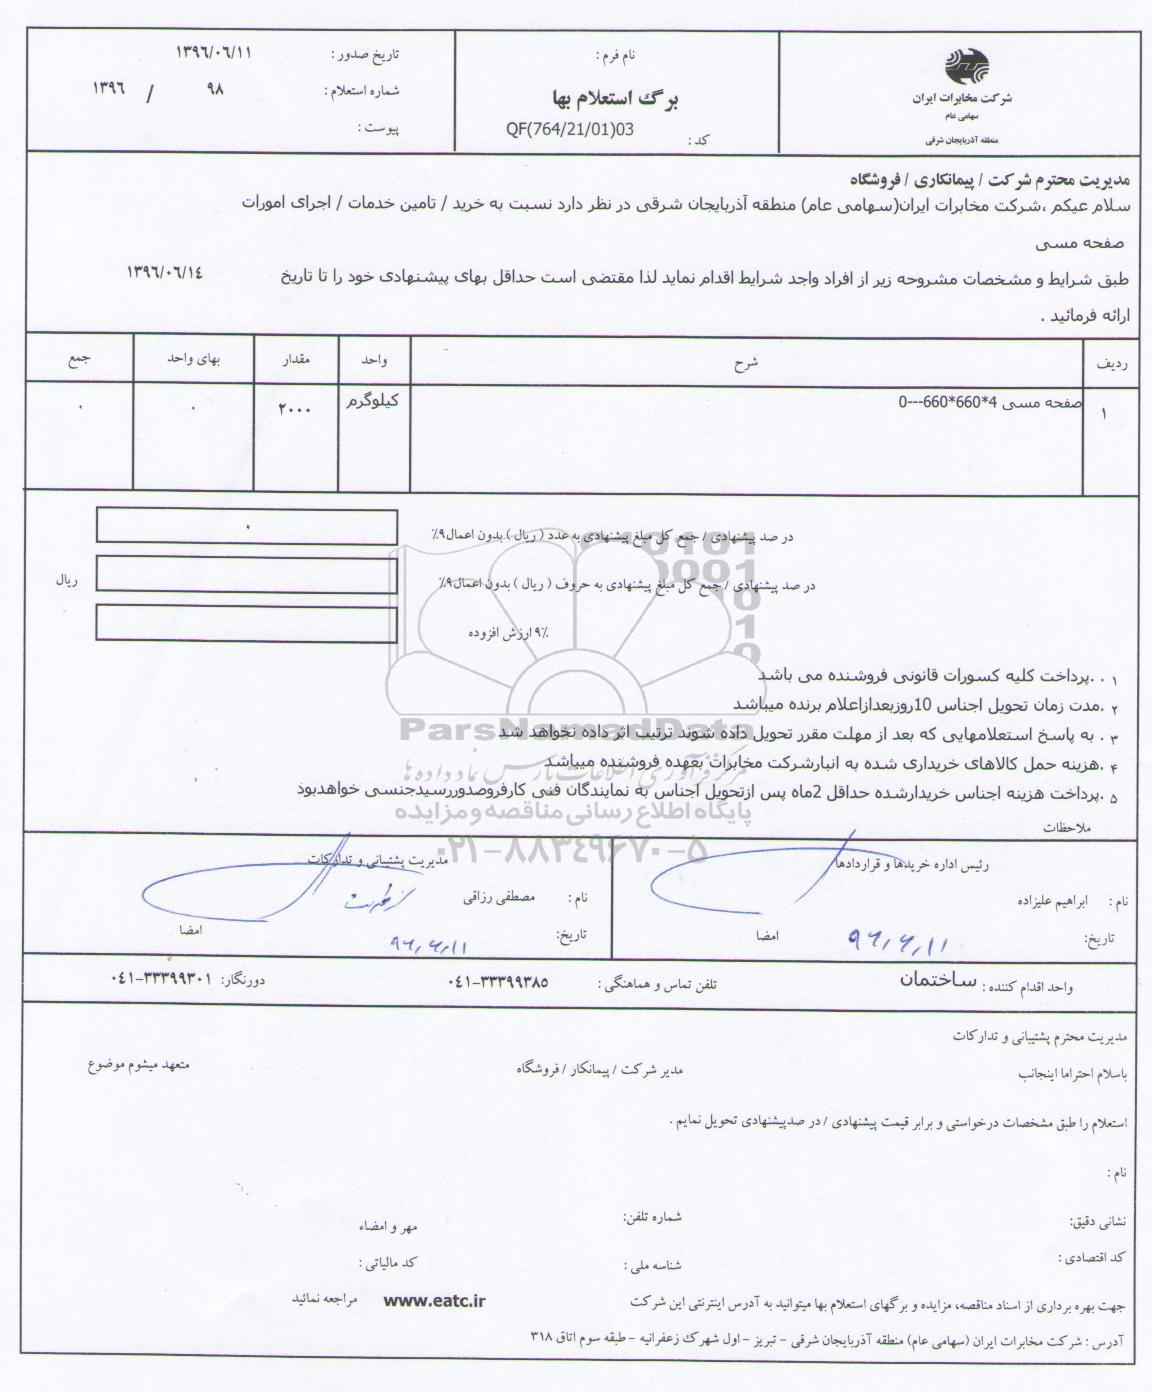 شرکت مخابرات ایران
سهامی عام
منطقه آذربایجان شرقی
نام فرم :
برگ استعلام بها
کد : QF(764/21/01)03
تاریخ صدور : ۱۳۹۶/۰۶/۱۱
شماره استعلام : ۹۸ / ۱۳۹۶
پیوست :
مدیریت محترم شرکت / پیمانکاری / فروشگاه
سلام عیکم ،شرکت مخابرات ایران(سهامی عام) منطقه آذربایجان شرقی در نظر دارد نسبت به خرید / تامین خدمات / اجرای امورات
صفحه مسی
طبق شرایط و مشخصات مشروحه زیر از افراد واجد شرایط اقدام نماید لذا مقتضی است حداقل بهای پیشنهادی خود را تا تاریخ ۱۳۹۶/۰۶/۱٤
ارائه فرمائید .
ردیف شرح واحد مقدار بهای واحد جمع
۱ صفحه مسی 4*660*660---0 کیلوگرم ۲۰۰۰ ۰ ۰
در صد پیشنهادی / جمع کل مبلغ پیشنهادی به عدد ( ریال ) بدون اعمال۹٪ ۰
در صد پیشنهادی / جمع کل مبلغ پیشنهادی به حروف ( ریال ) بدون اعمال۹٪ ریال
۹٪ ارزش افزوده
۱ . .پرداخت کلیه کسورات قانونی فروشنده می باشد
۲ .مدت زمان تحویل اجناس 10روزبعدازاعلام برنده میباشد
۳ . به پاسخ استعلامهایی که بعد از مهلت مقرر تحویل داده شوند ترتیب اثر داده نخواهد شد
۴ .هزینه حمل کالاهای خریداری شده به انبارشرکت مخابرات بعهده فروشنده میباشد
۵ .پرداخت هزینه اجناس خریدارشده حداقل 2ماه پس ازتحویل اجناس به نمایندگان فنی کارفروصدوررسیدجنسی خواهدبود
ملاحظات
ParsNamadData
مرکز فرآوری اطلاعات پارس نماد داده ها
پایگاه اطلاع رسانی مناقصه و مزایده
۰۲۱-۸۸۳۴۹۶۷۰-۵
رئیس اداره خریدها و قراردادها
نام : ابراهیم علیزاده
تاریخ: ۹۶,۶,۱۱ امضا
مدیریت پشتیبانی و تدارکات
نام : مصطفی رزاقی
تاریخ: ۹۶,۶,۱۱ امضا
واحد اقدام کننده : ساختمان تلفن تماس و هماهنگی : ۰٤۱-۳۳۳۹۹۳۸۵ دورنگار: ۰٤۱-۳۳۳۹۹۳۰۱
مدیریت محترم پشتیبانی و تدارکات
باسلام احتراما اینجانب مدیر شرکت / پیمانکار / فروشگاه متعهد میشوم موضوع
استعلام را طبق مشخصات درخواستی و برابر قیمت پیشنهادی / در صدپیشنهادی تحویل نمایم .
نام :
نشانی دقیق: شماره تلفن: مهر و امضاء
کد اقتصادی : شناسه ملی : کد مالیاتی :
جهت بهره برداری از اسناد مناقصه، مزایده و برگهای استعلام بها میتوانید به آدرس اینترنتی این شرکت www.eatc.ir مراجعه نمائید
آدرس : شرکت مخابرات ایران (سهامی عام) منطقه آذربایجان شرقی - تبریز - اول شهرک زعفرانیه - طبقه سوم اتاق ۳۱۸